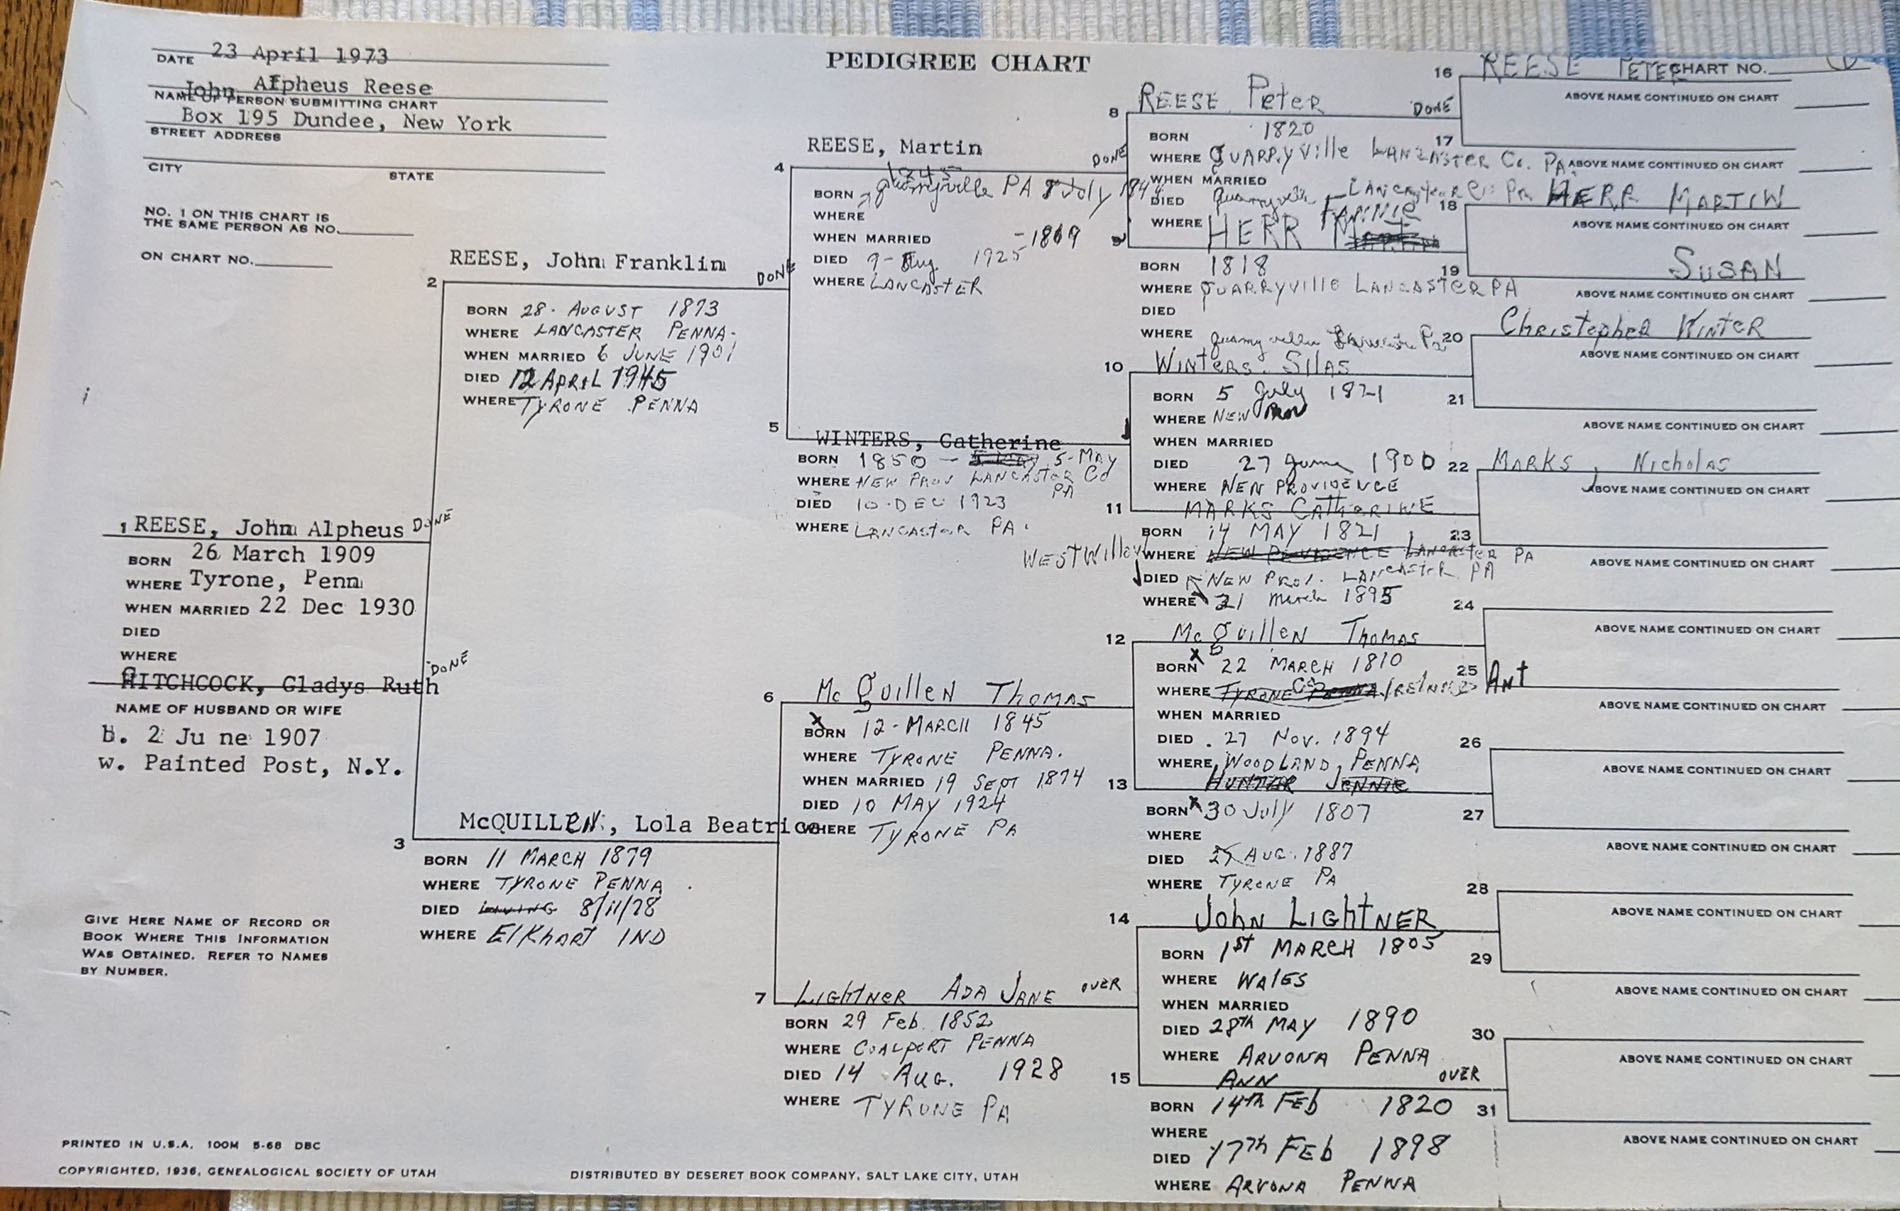 PEDIGREE CHART
DATE 23 April 1973
John Alpheus Reese
NAME OF PERSON SUBMITTING CHART
Box 195 Dundee, New York
STREET ADDRESS
CITY STATE
NO. 1 ON THIS CHART IS
THE SAME PERSON AS NO.
ON CHART NO.
1 REESE, John Alpheus DONE
BORN 26 March 1909
WHERE Tyrone, Penn
WHEN MARRIED 22 Dec 1930
DIED
WHERE
HITCHCOCK, Gladys Ruth DONE
NAME OF HUSBAND OR WIFE
b. 2 Ju ne 1907
w. Painted Post, N.Y.
GIVE HERE NAME OF RECORD OR
BOOK WHERE THIS INFORMATION
WAS OBTAINED. REFER TO NAMES
BY NUMBER.
PRINTED IN U.S.A. 100M 5-68 DBC
COPYRIGHTED, 1936, GENEALOGICAL SOCIETY OF UTAH
DISTRIBUTED BY DESERET BOOK COMPANY, SALT LAKE CITY, UTAH
2 REESE, John Franklin DONE
BORN 28 - AUGUST 1873
WHERE LANCASTER PENNA-
WHEN MARRIED 6 JUNE 1901
DIED 12 APRIL 1945
WHERE TYRONE PENNA
3 McQUILLEN, Lola Beatrice
BORN 11 MARCH 1879
WHERE TYRONE PENNA.
DIED LIVING 8/11/78
WHERE ElKhART IND
4 REESE, Martin DONE
1845
BORN quarryville PA 8 July 1844
WHERE
WHEN MARRIED -1869
DIED 9- Aug 1925
WHERE LANCASTER
5 WINTERS, Catherine
BORN 1850 - 5-MAY
WHERE NEW PROV LANCASTER Co
PA
DIED 10-DEC 1923
WHERE LANCASTOR PA.
6 Mc Quillen Thomas
X
BORN 12-MARCH 1845
WHERE TYRONE PENNA.
WHEN MARRIED 19 Sept 1874
DIED 10 MAY 1924
WHERE TYRONE PA
7 LIGHTNER ADA JANE OVER
BORN 29 Feb. 1852
WHERE COALPORT PENNA
DIED 14 AUG. 1928
WHERE TYRONE PA
8 REESE Peter DONE
BORN 1820
WHERE QUARRYVille LANCASTER Co. PA
WHEN MARRIED
DIED quarryville LANCASTER Co. PA
WHERE
9 HERR FANNIE
BORN 1818
WHERE QUARRYVille LANCASTER PA
DIED
WHERE
10 WINTERS. SILAS
BORN 5 July 1821
WHERE NEW PROV
WHEN MARRIED
DIED 27 June 1900
WHERE NEW PROVIDENCE
11 MARKS CATHERINE
BORN 14 MAY 1821
WEST Willow WHERE NEW PROVIDENCE LANCASTER PA
DIED NEW PROV. LANCASTER PA
WHERE 21 March 1895
12 Mc Quillen Thomas
X
BORN 22 MARCH 1810
WHERE TYRONE PENNA Ant
WHEN MARRIED
DIED . 27 Nov. 1894
WHERE WOODLAND, PENNA
13 HUNTER JENNIE
BORN X 30 July 1807
WHERE
DIED 27 AUG. 1887
WHERE TYRONE PA
14 John LIGHTNER
BORN 1st MARCH 1805
WHERE WAlES
WHEN MARRIED
DIED 28th MAY 1890
WHERE ARVONA PENNA
15 ANN OVER
BORN 14th Feb 1820
WHERE
DIED 17th Feb 1898
WHERE ARVONA PENNA
16 REESE PETER CHART NO.
ABOVE NAME CONTINUED ON CHART
17
ABOVE NAME CONTINUED ON CHART
18 HERR MARTIN
ABOVE NAME CONTINUED ON CHART
19 SUSAN
ABOVE NAME CONTINUED ON CHART
20 Christopher WINTER
ABOVE NAME CONTINUED ON CHART
21
ABOVE NAME CONTINUED ON CHART
22 MARKS, Nicholas
ABOVE NAME CONTINUED ON CHART
23
ABOVE NAME CONTINUED ON CHART
24
ABOVE NAME CONTINUED ON CHART
25
ABOVE NAME CONTINUED ON CHART
26
ABOVE NAME CONTINUED ON CHART
27
ABOVE NAME CONTINUED ON CHART
28
ABOVE NAME CONTINUED ON CHART
29
ABOVE NAME CONTINUED ON CHART
30
ABOVE NAME CONTINUED ON CHART
31
ABOVE NAME CONTINUED ON CHART